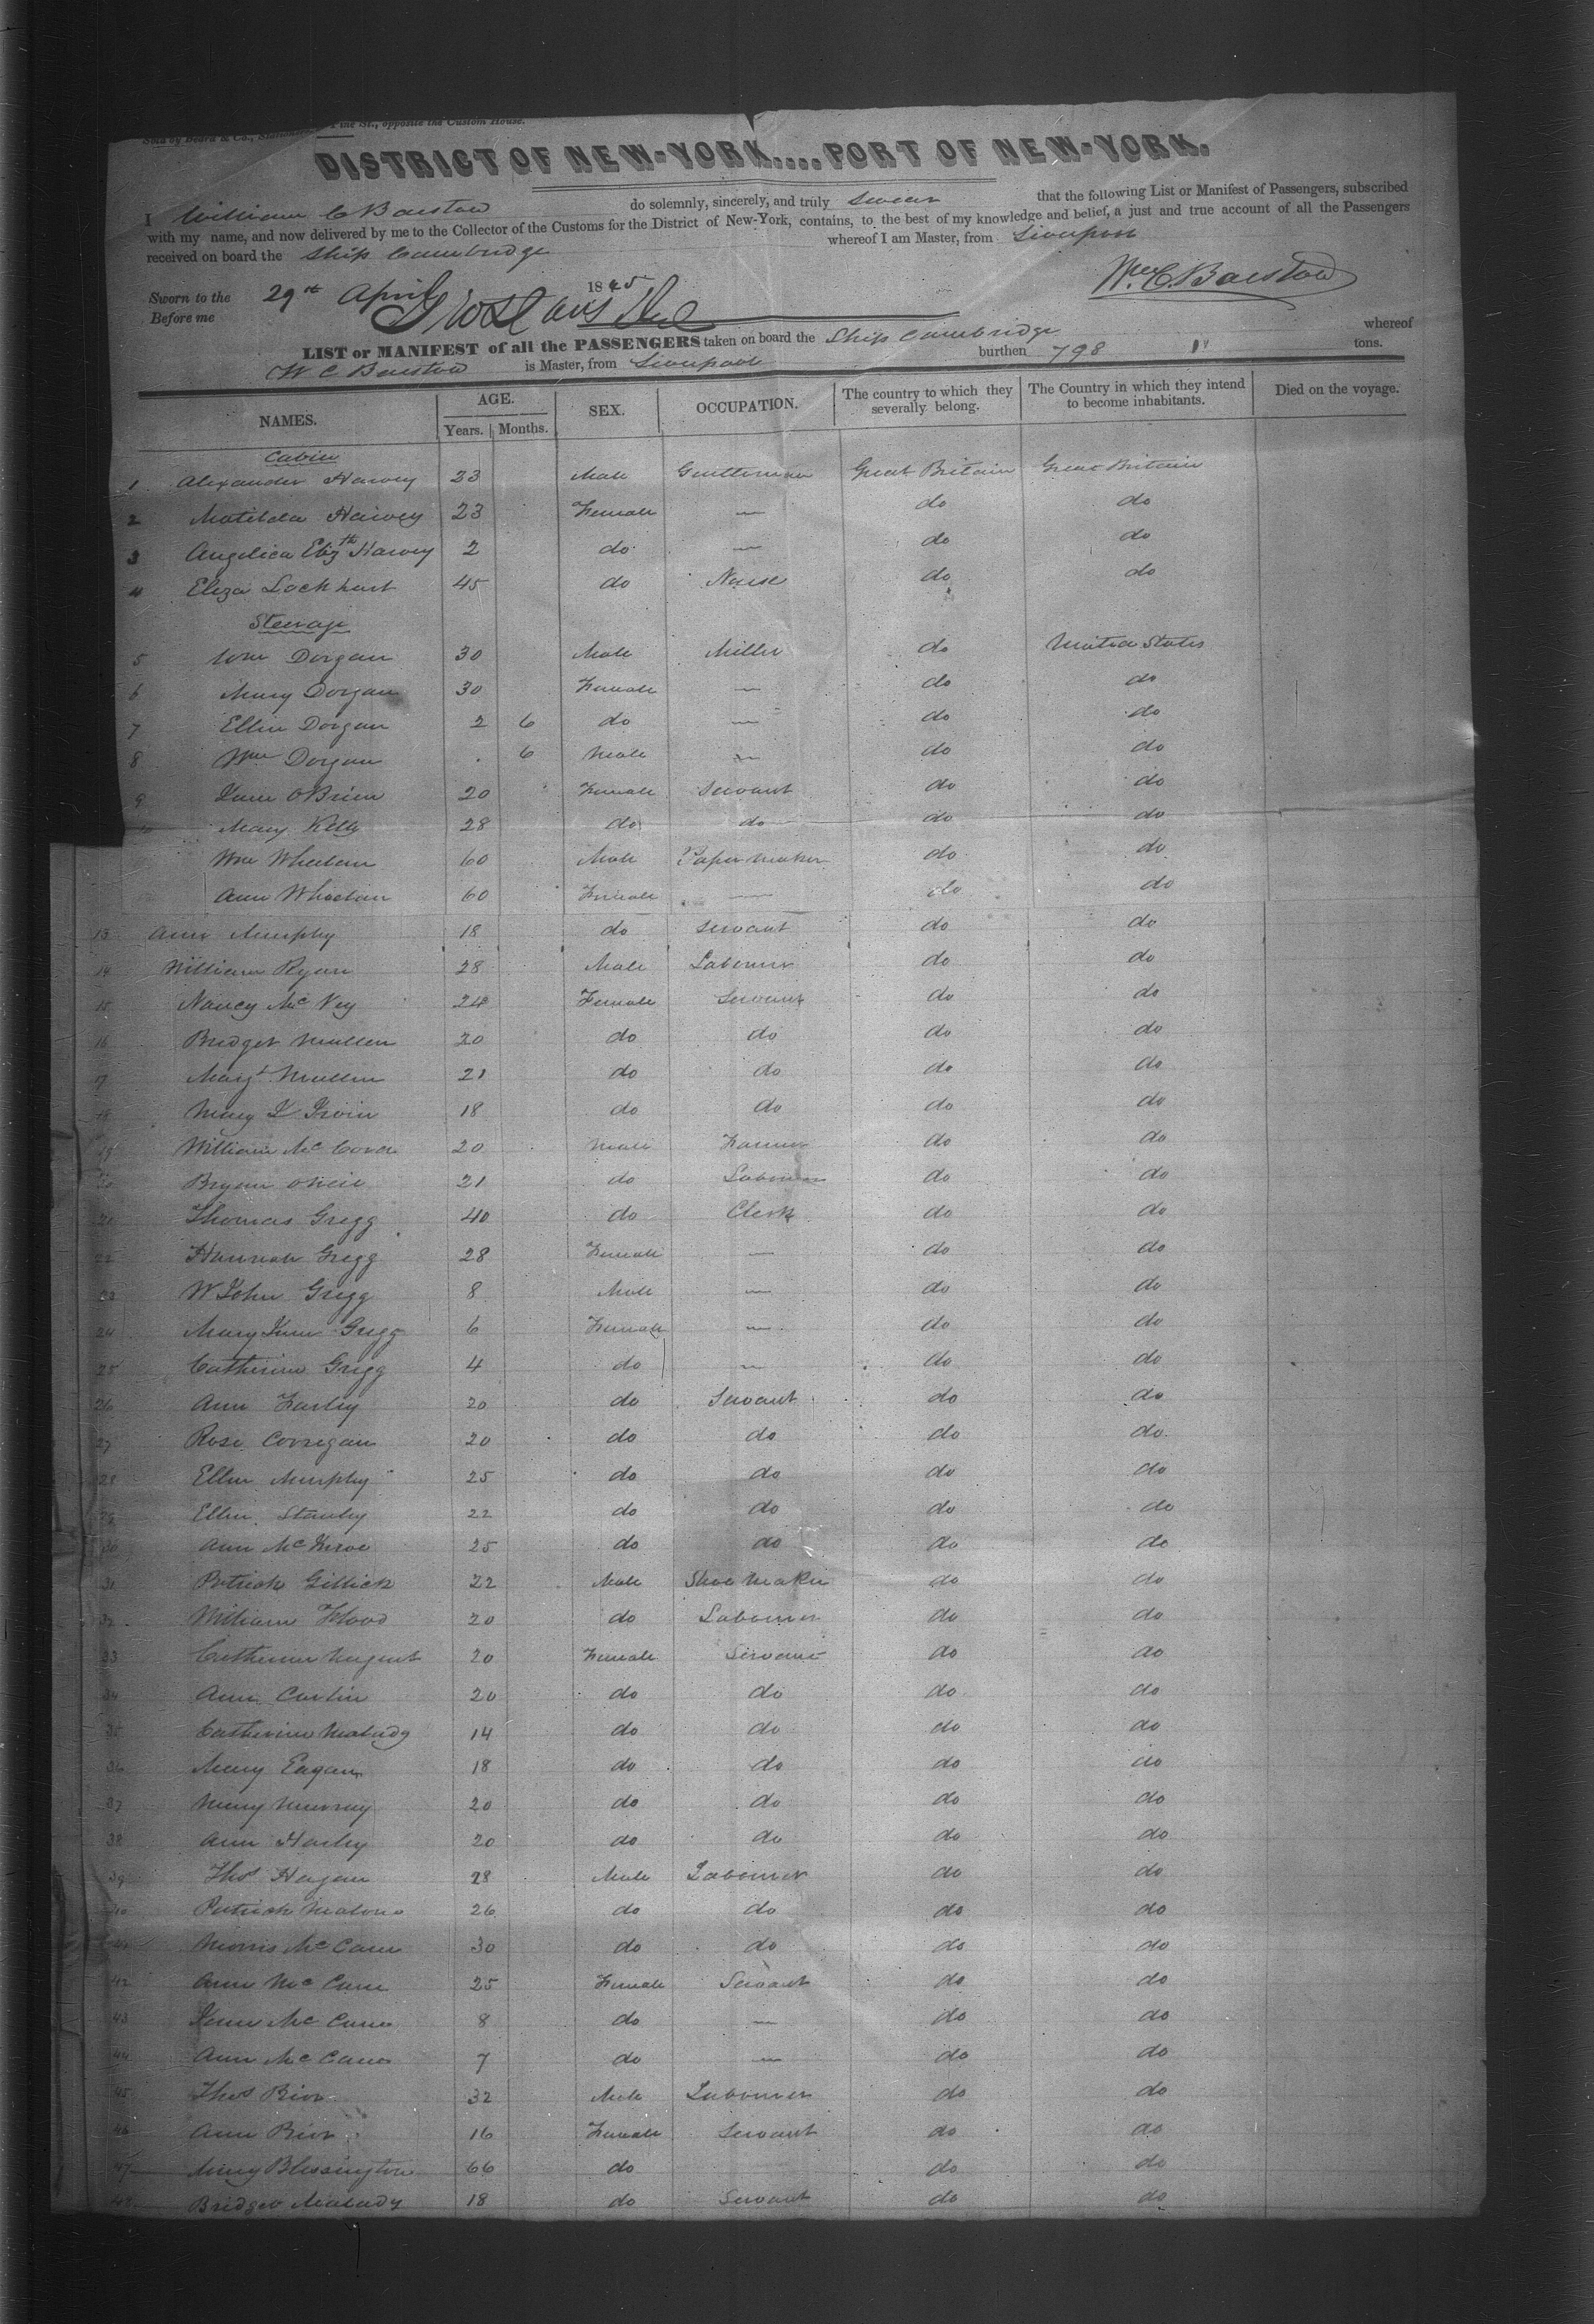 Sold by Beard & Co., Pine St., opposite the Custom House.
DISTRICT OF NEW-YORK....PORT OF NEW-YORK.
I William C Barstow do solemnly, sincerely, and truly swear that the following List or Manifest of Passengers, subscribed
with my name, and now delivered by me to the Collector of the Customs for the District of New-York, contains, to the best of my knowledge and belief, a just and true account of all the Passengers
received on board the Ship Cambridge whereof I am Master, from Liverpool
Wm C. Barstow
Sworn to the 29th April 1845
Before me
LIST or MANIFEST of all the PASSENGERS taken on board the Ship Cambridge whereof
W C Barstow is Master, from Liverpool burthen 798 tons.
NAMES. AGE. Years. Months. SEX. OCCUPATION. The country to which they severally belong. The Country in which they intend to become inhabitants. Died on the voyage.
Cabin
1 Alexander Harvey 23 Male Gentleman Great Britain Great Britain
2 Matilda Harvey 23 Female — do do
3 Angelica Elizth Harvey 2 do — do do
4 Eliza Lockhart 45 do Nurse do do
Steerage
5 Wm Dorgan 30 Male Miller do United States
6 Mary Dorgan 30 Female — do do
7 Ellin Dorgan 2 6 do — do do
8 Wm Dorgan . 6 Male — do do
9 Jane OBrien 20 Female Servant do do
10 Mary Kelly 28 do do do do
Wm Wheelan 60 Male Paper Maker do do
Ann Wheelan 60 Female — do do
13 Ann Murphy 18 do Servant do do
14 William Ryan 28 Male Labourer do do
15 Nancy Mc Vey 24 Female Servant do do
16 Bridget Mullen 20 do do do do
17 Margt Mullen 21 do do do do
18 Mary J Irvin 18 do do do do
19 William Mc 20 Male Farmer do do
20 Bryan ONeil 21 do Labourer do do
21 Thomas Gregg 40 do Clerk do do
22 Hannah Gregg 28 Female — do do
23 W John Gregg 8 Male — do do
24 Mary Jane Gregg 6 Female — do do
25 Catherine Gregg 4 do — do do
26 Ann Farley 20 do Servant do do
27 Rose Corregan 20 do do do do
28 Ellin Murphy 25 do do do do
29 Ellin Stanley 22 do do do do
30 Ann Mc 25 do do do do
31 Patrick Gillick 22 Male Shoe Maker do do
32 William Flood 20 do Labourer do do
33 Catherine Nugent 20 Female Servant do do
34 Ann Carlin 20 do do do do
35 Catherine Malady 14 do do do do
36 Mary Eagan 18 do do do do
37 Mary Murray 20 do do do do
38 Ann Harley 20 do do do do
39 Thos Hagan 28 Male Labourer do do
40 Patrick Malone 26 do do do do
41 Morris Mc Cann 30 do do do do
42 Ann Mc Cann 25 Female Servant do do
43 Jane Mc Cann 8 do — do do
44 Ann Mc Cann 7 do — do do
45 Thos 32 Male Labourer do do
46 Ann 16 Female Servant do do
47 Mary Blessington 66 do do do
48 Bridget Malady 18 do Servant do do